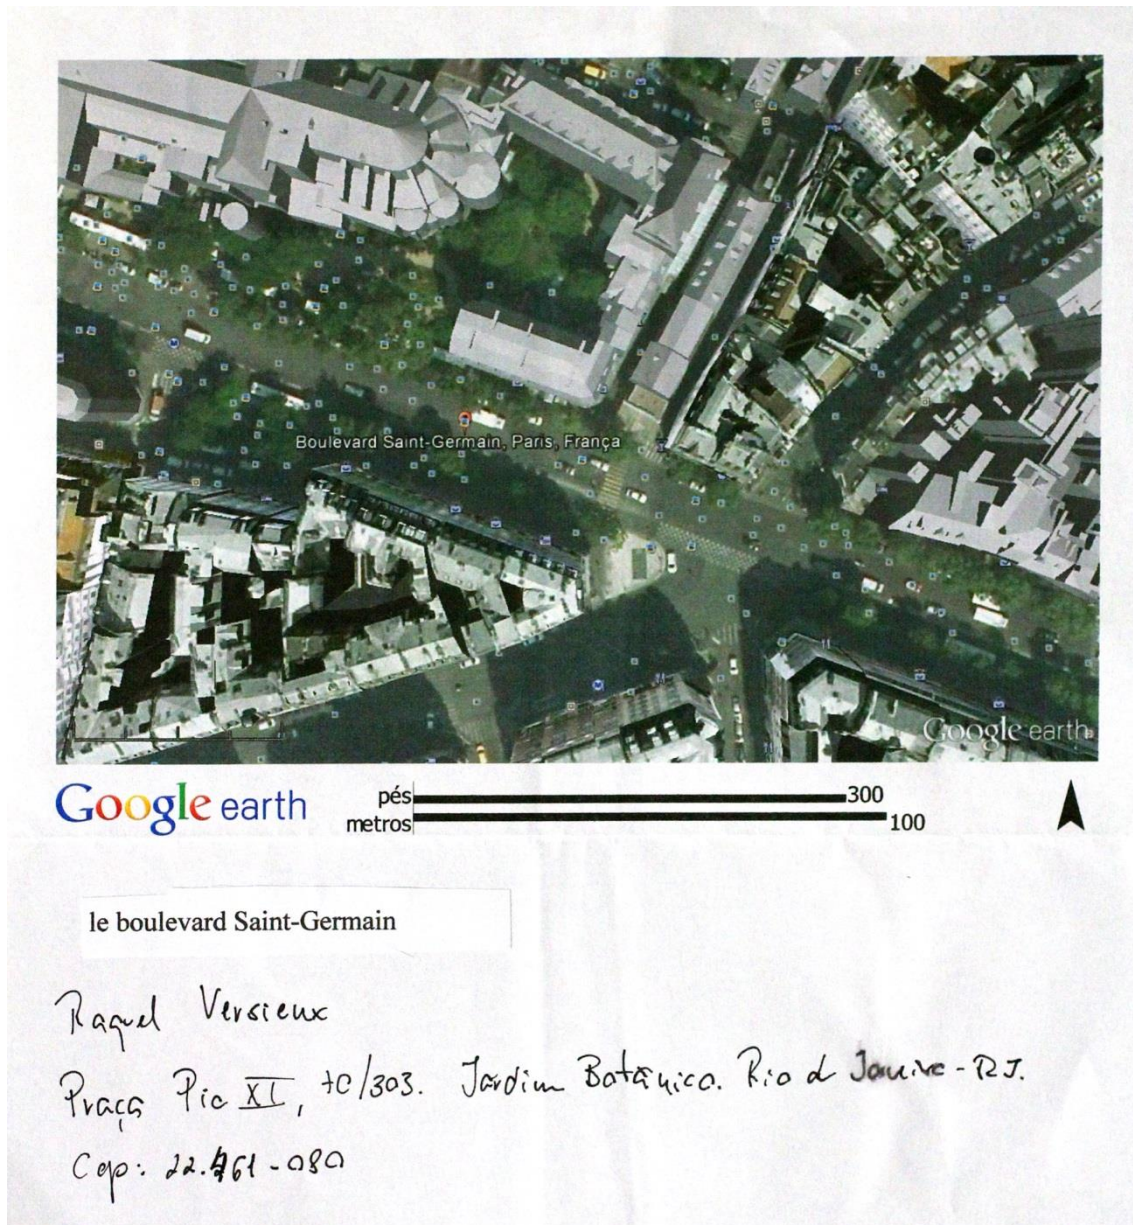 Boulevard Saint-Germain, Paris, França
Google earth
Google earth
pés 300
metros 100
le boulevard Saint-Germain
Raquel Versieux
Praça Pio XI, 70/303. Jardim Botânico. Rio d Janeiro - RJ.
Cep: 22.461-080